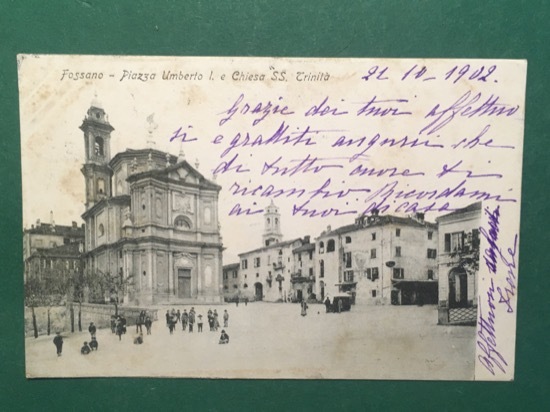 Fossano - Piazza Umberto I. e Chiesa SS. Trinità
21 10 902
Grazie dei tuoi affettuo
si e graditi auguri che
di tutto cuore ti
ricambio. Ricordami
ai tuoi di casa
Affettuosi
Irene